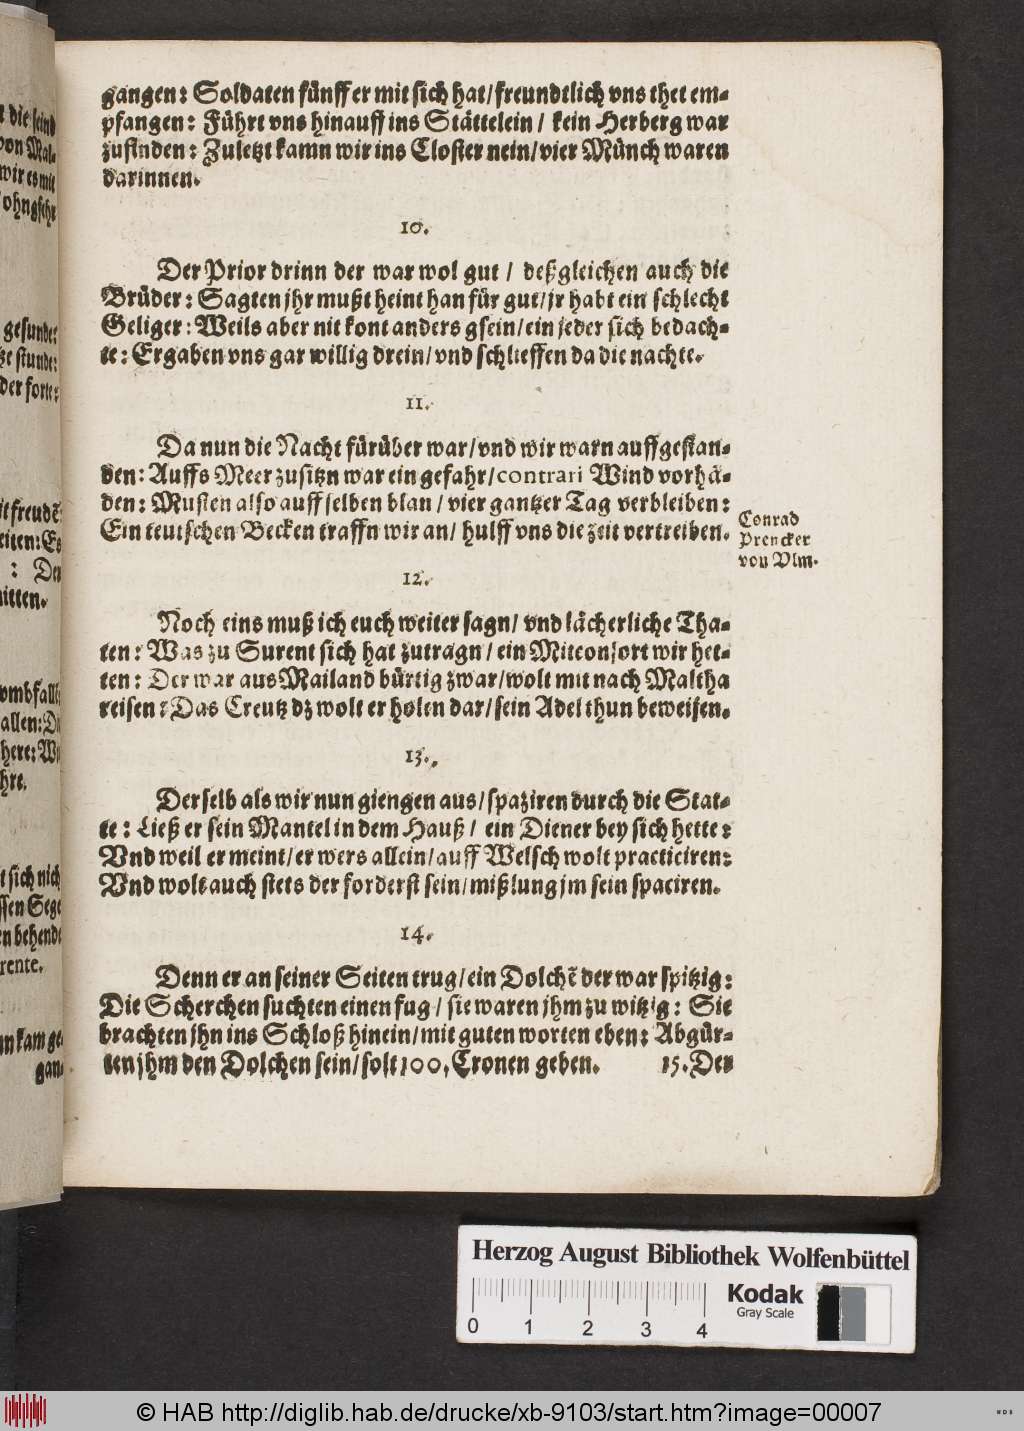 gangen: Soldaten fünff er mit sich hat/ freundtlich vns thet em-
pfangen: Führt vns hinauff ins Stättelein/ kein Herberg war
zufinden: Zuletzt kamn wir ins Closter nein/ vier Münch waren
darinnen.
10.
Der Prior drinn der war wol gut/ deßgleichen auch die
Brüder: Sagten jhr mußt heint han für gut/ jr habt ein schlecht
Geliger: Weils aber nit kont anders gsein/ ein jeder sich bedach-
te: Ergaben vns gar willig drein/ vnd schlieffen da die nachte.
11.
Da nun die Nacht fürüber war/ vnd wir warn auffgestan-
den: Auffs Meer zusitzn war ein gefahr/ contrari Wind vorhā-
den: Musten also auff selben blan/ vier gantzer Tag verbleiben:
Ein teutschen Becken traffn wir an/ hulff vns die zeit vertreiben.
Conrad
Prencker
von Vlm.
12.
Noch eins muß ich euch weiter sagn/ vnd lächerliche Tha-
ten: Was zu Surent sich hat zutragn/ ein Mitconsort wir het-
ten: Der war aus Mailand bürtig zwar/ wolt mit nach Maltha
reisen: Das Creutz dz wolt er holen dar/ sein Adel thun beweisen.
13.
Derselb als wir nun giengen aus/ spaziren durch die Stat-
te: Ließ er sein Mantel in dem Hauß/ ein Diener bey sich hette:
Vnd weil er meint/ er wers allein/ auff Welsch wolt practiciren:
Vnd wolt auch stets der forderst sein/ mißlung jm sein spaciren.
14.
Denn er an seiner Seiten trug/ ein Dolchẽ der war spitzig:
Die Scherchen suchten einen fug/ sie waren jhm zu witzig: Sie
brachten jhn ins Schloß hinein/ mit guten worten eben: Abgür-
ten jhm den Dolchen sein/ solt 100. Cronen geben. 15. Der
Herzog August Bibliothek Wolfenbüttel
Kodak
Gray Scale
0 1 2 3 4
© HAB http://diglib.hab.de/drucke/xb-9103/start.htm?image=00007